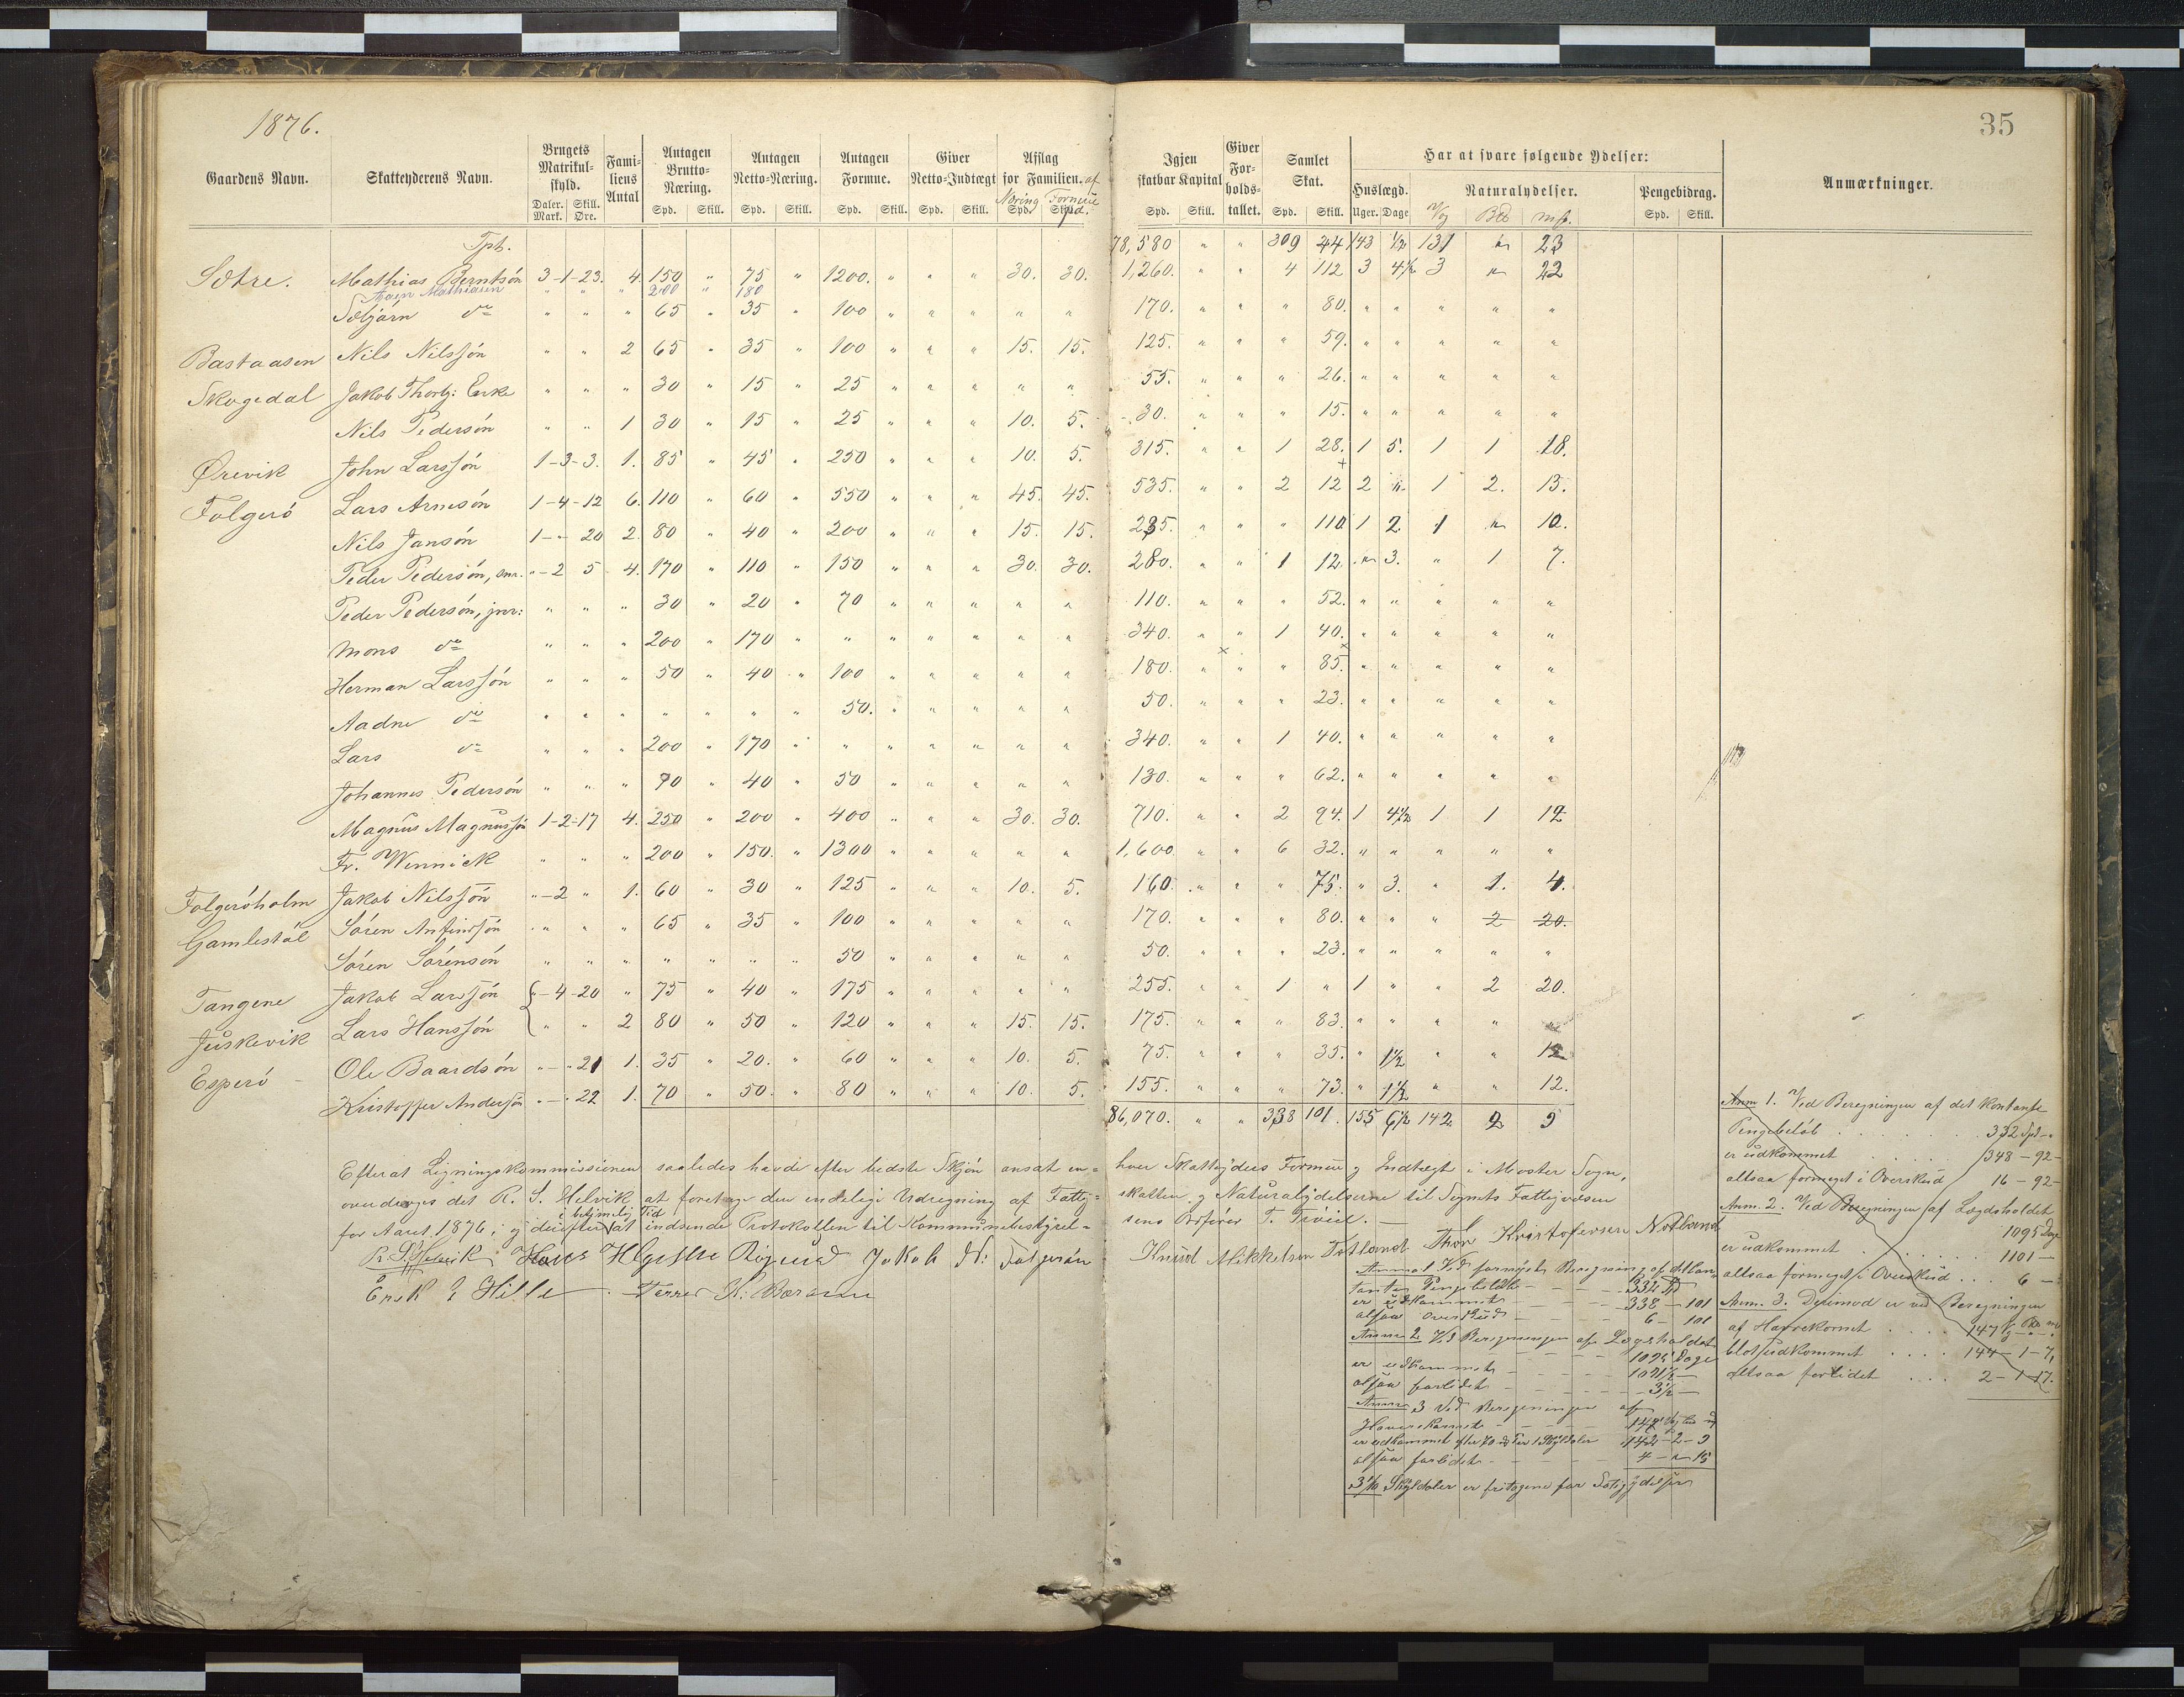 1876.
35
Gaardens Navn. Skatteyderens Navn. Brugets Matrikul-skyld. Daler. Skill. Mark. Øre. Familiens Antal Antagen Brutto-Næring. Spd. Skill. Antagen Netto-Næring. Spd. Skill. Antagen Formue. Spd. Skill. Giver Netto-Indtægt Spd. Skill. Afslag for Familien. af Næring Spd. Formue Spd. Igjen skatbar Kapital Spd. Skill. Giver Forholds-tallet. Samlet Skat. Spd. Skill. Har at svare følgende Ydelser: Huslægd. Uger. Dage Naturalydelser. Vog Bd mk. Pengebidrag. Spd. Skill. Anmærkninger.
Tpt. 78,580 " " 309 44 143 1/2 131 " 23
Sætre. Mathias Berntsón 3-1-23. 4. 150 " 75 " 1200. " " " 30. 30. 1,260. " " 4 112 3 4 1/2 3 " 22
Mathiasen " " " 200 " 180
Sæbjørn do " " " 65 " 35 " 100 " " " " " 170. " " " 80. " " " " "
Bastaasen Nils Nilssón " " 2 65 " 35 " 100 " " " 15. 15. 125. " " " 59. " " " " "
Skogedal Jakob Thorbj: Enke " " " 30 " 15 " 25 " " " " " 55. " " " 26. " " " " "
Nils Pedersón " " 1 30 " 15 " 25 " " " 10. 5. 30. " " " 15. " " " " "
Ørevik John Larssón 1-3-3. 1. 85 " 45 " 250 " " " 10. 5. 315. " " 1 28. 1 5. 1 1 18.
Folgeró Lars Arnesón 1-4-12 6. 110 " 60 " 550 " " " 45. 45. 535. " " 2 12 2 " 1 2. 13.
Nils Jansón 1-"-20 2. 80 " 40 " 200 " " " 15. 15. 235. " " " 110 1 2 1 " 10.
Peder Pedersón, snr. "-2 5 4. 170 " 110 " 150 " " " 30. 30. 280. " " 1 12. " 3. " 1 7.
Peder Pedersón, jnr: " " " 30 " 20 " 70 " " " " " 110. " " " 52. " " " " "
Mons do " " " 200 " 170 " " " " " " " 340. " " 1 40. " " " " "
Herman Larssón " " " 50 " 40 " 100 " " " " " 180. " " " 85. " " " " "
Aadne do " " " " " " " 50. " " " " " 50. " " " 23. " " " " "
Lars do " " " 200 " 170 " " " " " " " 340. " " 1 40. " " " " "
Johannes Pedersón " " " 70 " 40 " 50 " " " " " 130. " " " 62. " " " " "
Magnus Magnussón 1-2-17 4. 250 " 200 " 400 " " " 30. 30. 710. " " 2 94. 1 4 1/2 1 1 12
Fr. Wennick " " " 200 " 150. " 1300 " " " " " 1,600 " " 6 32. " " " " "
Folgeróholm Jakob Nilssón "-2 " 1. 60 " 30 " 125 " " " 10. 5. 160. " " " 75. " 3. " 1. 4.
Gamlestól Sören Anfinssón " " " 65 " 35 " 100 " " " " " 170. " " " 80. " " " 2 20.
Sören Sörensón " " " " " " " 50 " " " " " 50. " " " 23. " " " " "
Tangene Jakob Larssón "-4-20 " 75 " 40 " 175 " " " " " 255. " " 1 " 1 " " 2 20.
Juskevik Lars Hanssón " " 2 80 " 50 " 120 " " " 15. 15. 175. " " " 83. " " " "
Esperó Ole Baardsón "-"-21 1. 35 " 20. " 60 " " " 10. 5. 75. " " " 35. " 1 1/2 " " 12
Kristoffer Anderssón "-"-22 1. 70 " 50. " 80 " " " 10. 5. 155. " " " 73. " 1 1/2 " " 12.
86,070. " " 338 101. 155 6 1/2 142 2 9
Efterat Ligningskommissionen saaledes havde efter bedste Skjön ansat en-hver Skatteyders Formue og Indtægt i Moster Sogn,
overdroges det R. S. Helvik at foretage den endelige Udregning af Fattig-skatten og Naturalydelserne til Sognets Fattigvæsen
for Aaret 1876, og derefter i betimelig Tid at indsende Protokollen til Kommunebestyrel-sens Ordförer T. Tröied. —
R. S. Helvik Hans Helgesen Røgnud Jakob N: Folgerøen Knud Mikkelsen Totland Thor Kristofersen Notland
Erik Hille Ferner K:
Anm 1. Ved Beregningen af det kontante
Pengebelöb . . . . . 332 Spd-"
er udkommet . . . . 348-92-
altsaa formeget i Overskud 16-92-
Anm. 2. Ved Beregningen af Lægdsholdet
1095 Dage
er udkommet . . . . 1101 —
altsaa formeget i Overskud . . . 6 —
Anm. 3. Derimod er ved Beregningen
af Havrekornet . . . 147
blot udkommet . . . . 144-1-7,
altsaa forlidet . . . 2-1-17.
Anm 1 Ved fornyet Beregning af det kon-
tante Pengebelöb - - - 332
er udkommet - - - 338 - 101
altsaa Overskud - - - 6 - 101
Anm 2 Ved Beregningen af Lægdsholdet
- - - 1095 Dage
er udkommet - - - 1091 1/2 —
altsaa forlidet - - - 3 1/2 —
Anm 3 Ved Beregningen af
Havrekornet - - - 147
er udkommet efter 142-2-9
altsaa forlidet - - - 4-"-15
Skyldaler er fritagne for